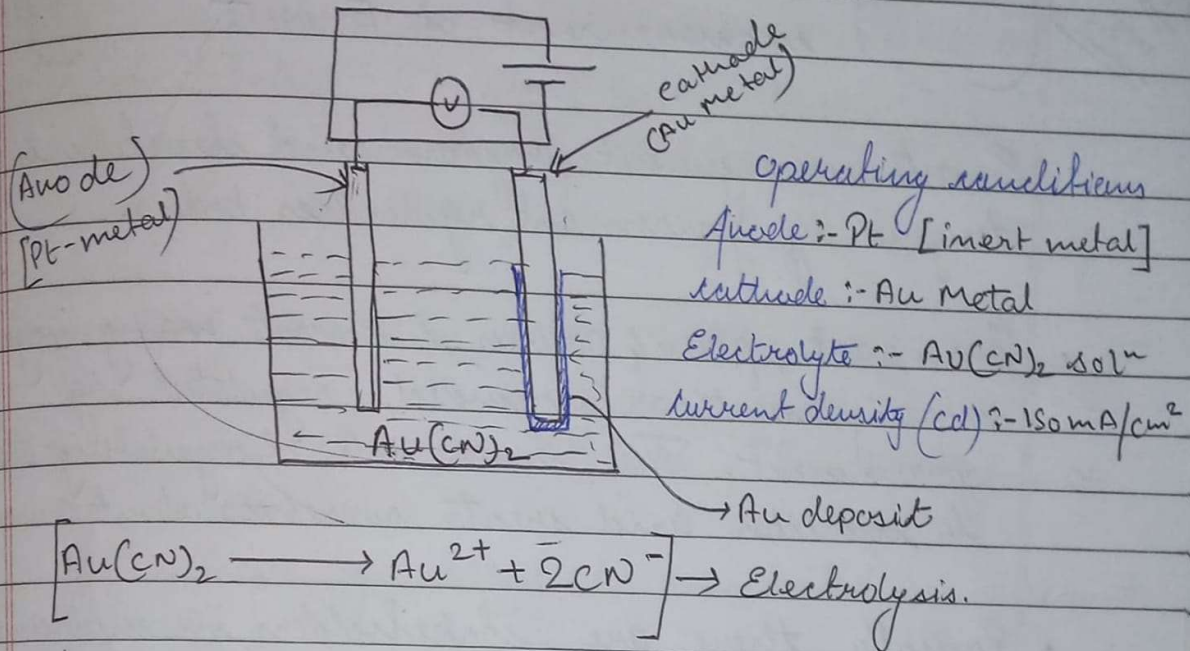 cathode
(Au metal)
(Anode)
[Pt-metal)
V
operating conditions
Anode :- Pt [inert metal]
cathode :- Au Metal
Electrolyte :- Au(CN)₂ solⁿ
current density (cd) :- 150 mA/cm²
Au(CN)₂
→ Au deposit
[Au(CN)₂ ⟶ Au²⁺ + 2CN⁻] → Electrolysis.